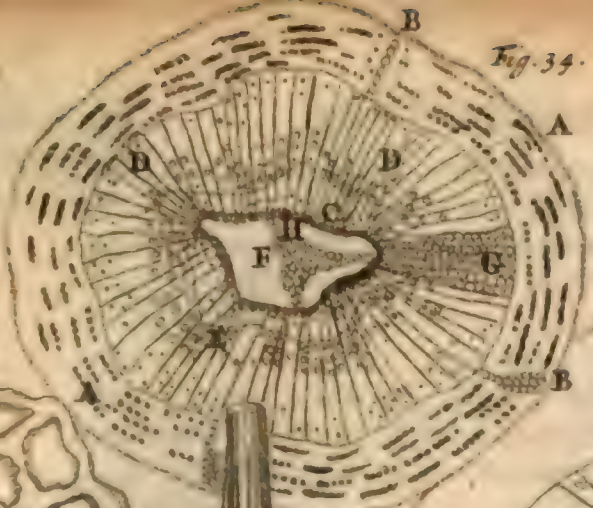 B
Fig. 34.
A
D D
C
H
F G
E
A B